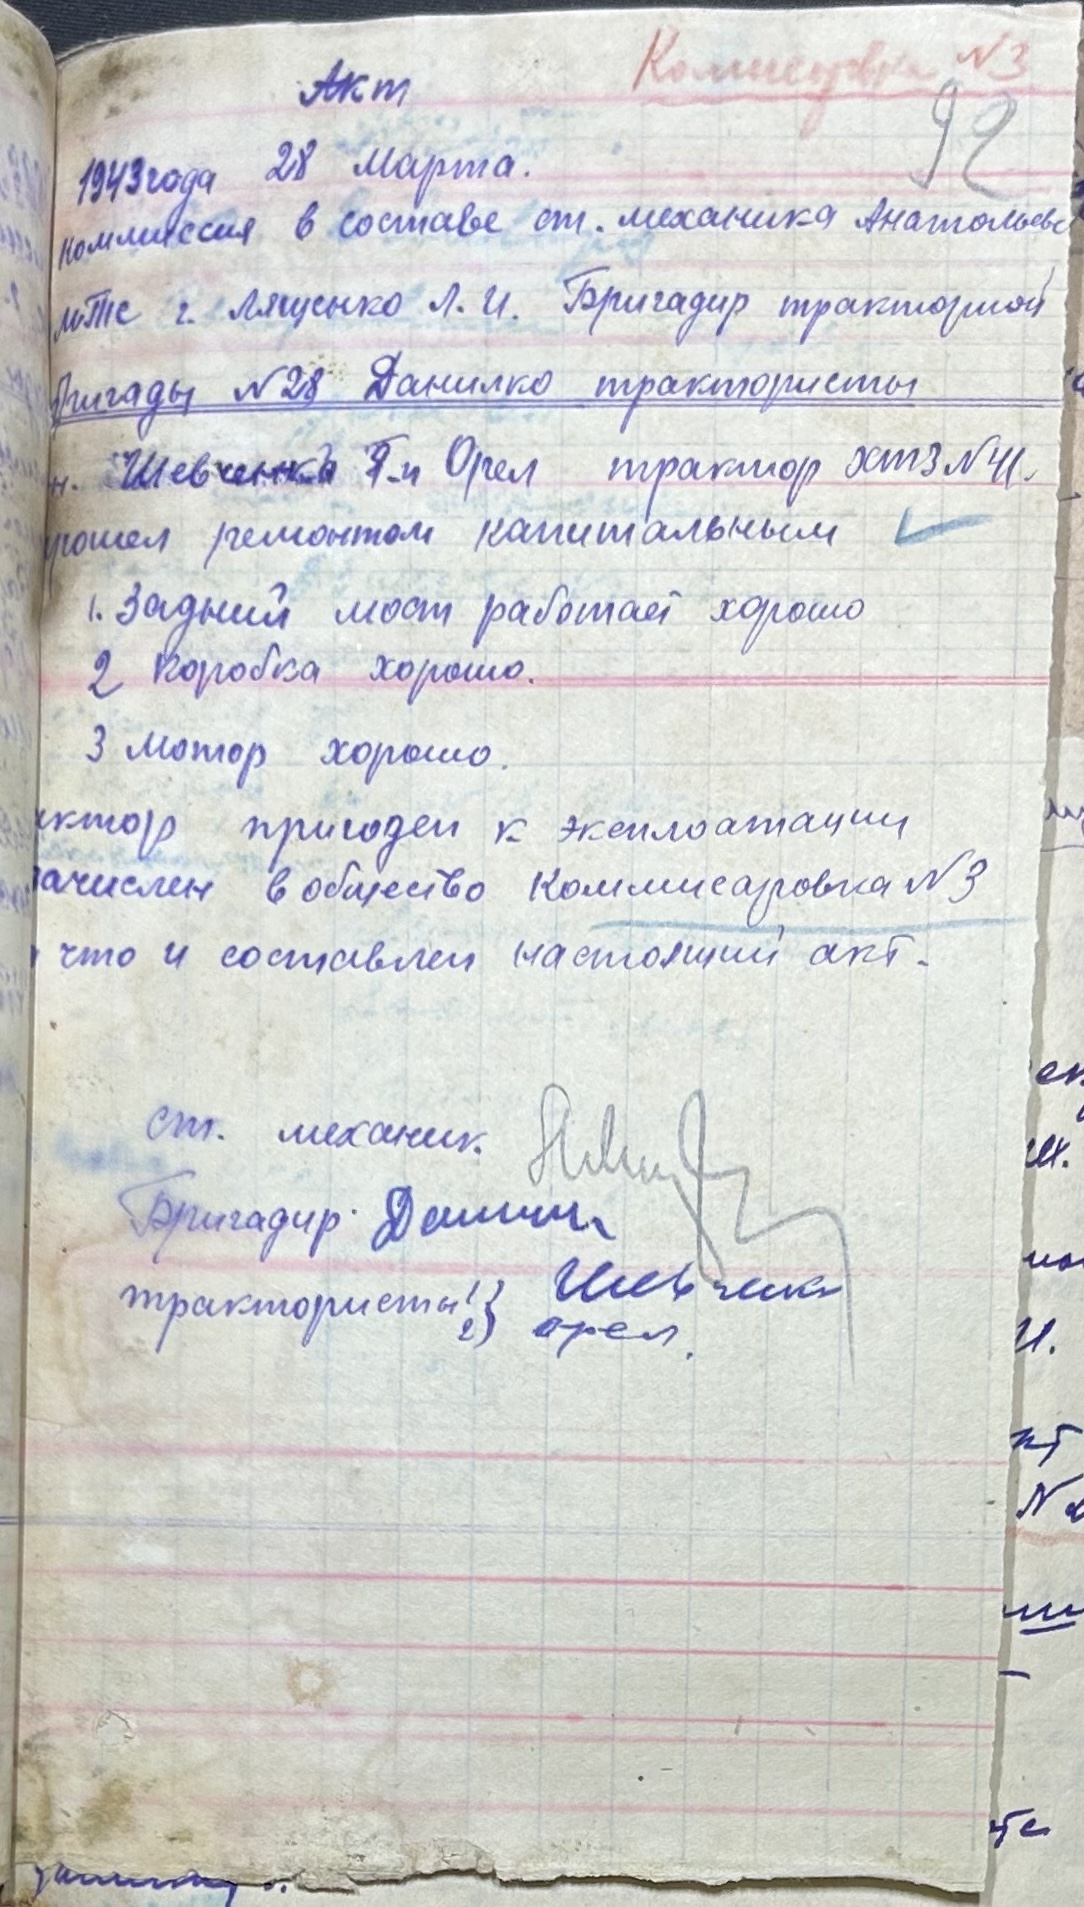 Комисаровка N3
92
Акт
1943 года 28 марта.
коммиссия в составе ст. механика Анатольевс
мтс г. Лященко Л. И. Бригадир тракторной
бригады N28 Данилко трактористы
н. Шевченко Я. и Орел трактор ХТЗ N41.
рошел ремонтом капитальным
1. Задний мост работает хорошо
2 коробка хорошо.
3 мотор хорошо.
актор пригоден к эксплоатации
зачислен в общество Коммисаровка N3
что и составлен настоящий акт.
ст. механик.
Бригадир. Данил
трактористы 1) Шевченко
2) орел.